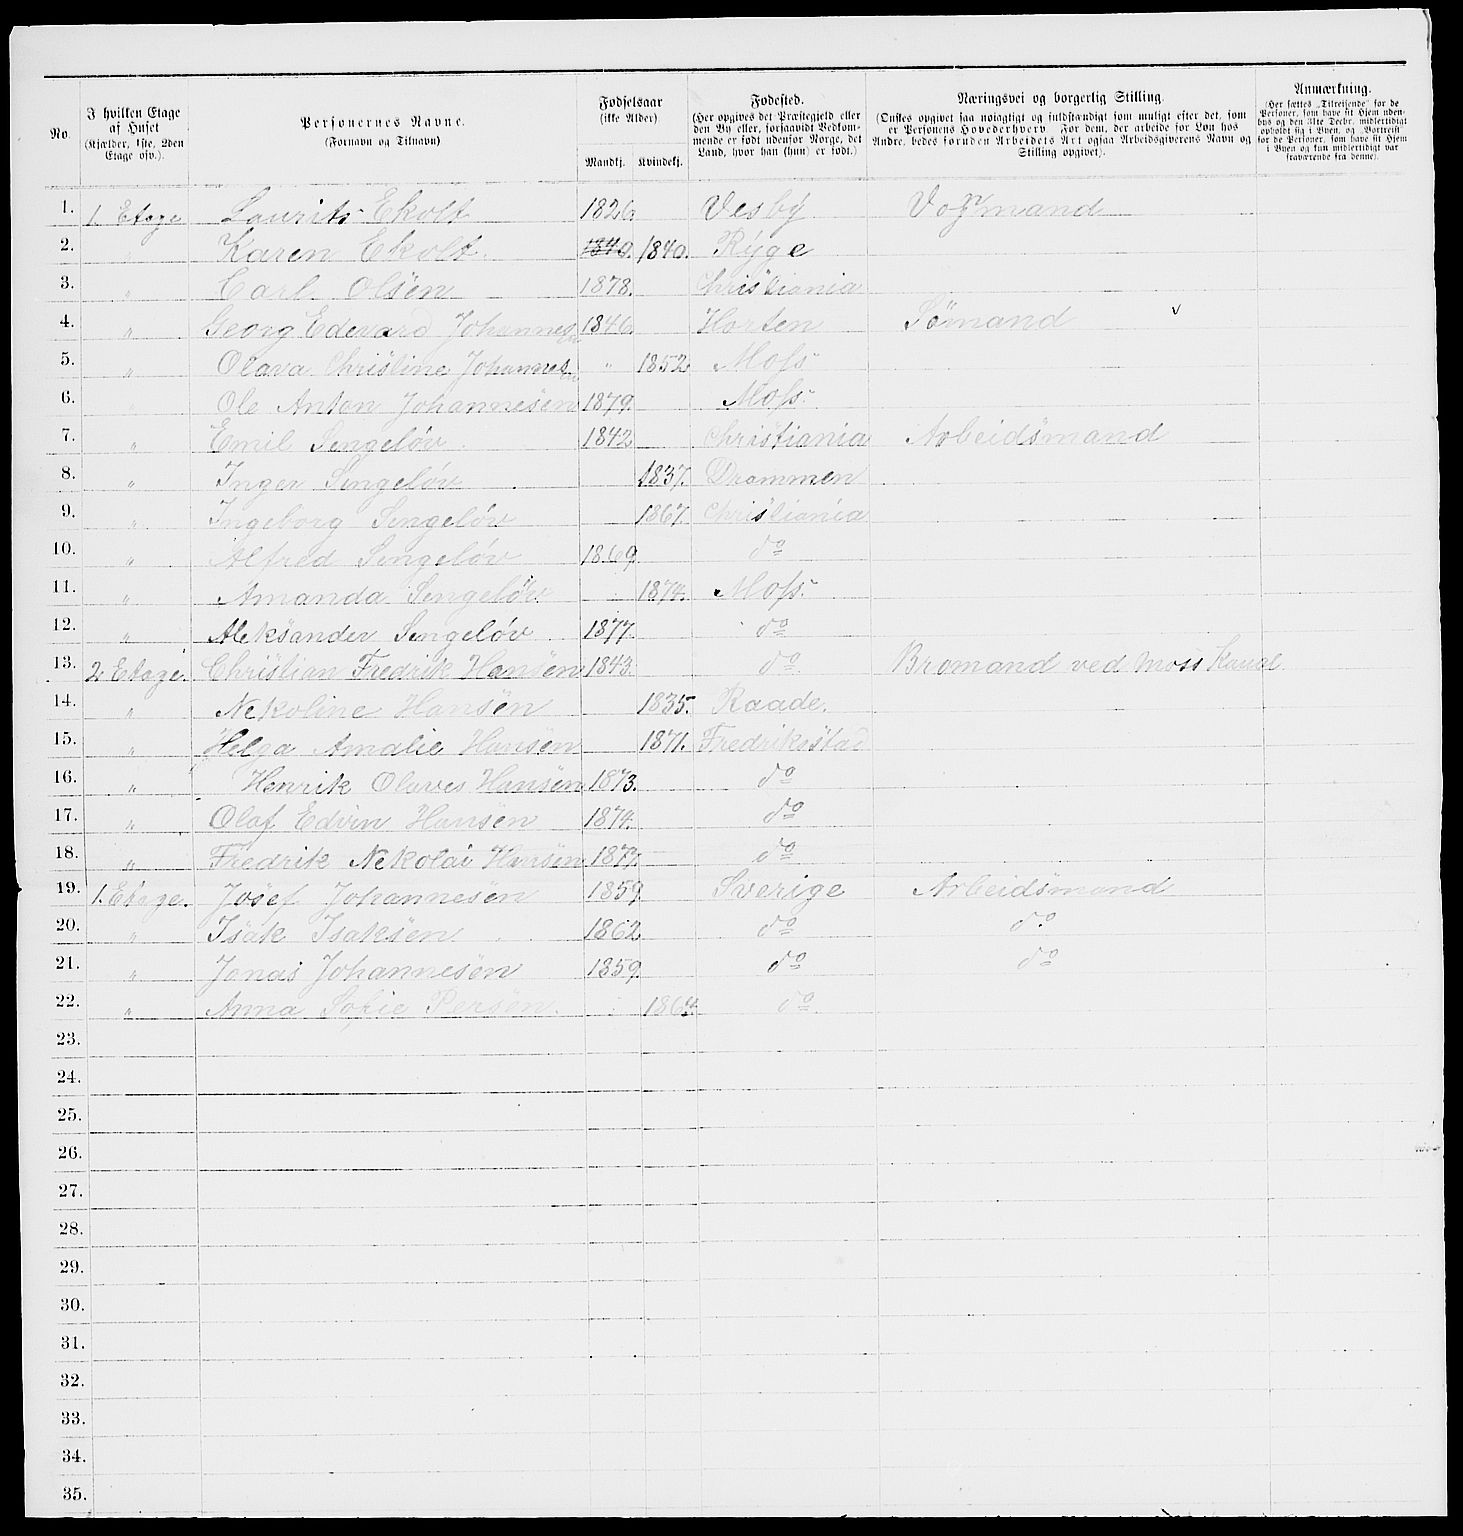 No.
I hvilken Etage af Huset (Kjælder, 1ste, 2den Etage osv.).
Personernes Navne. (Fornavn og Tilnavn)
Fødselsaar (ikke Alder).
Mandkj. Kvindekj.
Fødested. (Her opgives det Præstegjeld eller den By eller, forsaavidt Vedkommende er født udenfor Norge, det Land, hvor han (hun) er født.)
Næringsvei og borgerlig Stilling. (Ønskes opgivet saa nøiagtigt og fuldstændigt som muligt efter det, som er Personens Hovederhverv. For dem, der arbeide for Løn hos Andre, bedes foruden Arbeidets Art ogsaa Arbeidsgiverens Navn og Stilling opgivet).
Anmærkning. (Her sættes „Tilreisende" for de Personer, som have sit Hjem udenbys og den 31te Decbr. midlertidigt opholdt sig i Byen, og „Bortreist" for de Personer, som have sit Hjem i Byen og kun midlertidigt var fraværende fra denne).
1. 1. Etage Laurits Ekolt 1826. Vesby Vognmand
2. " Karen Ekolt. 1840. 1840. Ryge
3. " Carl Olsen 1878. Christiania
4. " Georg Edevard Johannesen 1846. Horten Sømand v
5. " Olava Christine Johannesen " 1852 Moss
6. " Ole Anton Johannesen 1879. Moss.
7. " Emil Sengeløv. 1842 Christiania Arbeidsmand
8. " Inger Sengeløv 1837. Drammen
9. " Ingeborg Sengeløv 1867. Christiania
10. " Alfred Sengeløv 1869. do
11. " Amanda Sengeløv. 1874. Moss.
12. " Aleksander Sengeløv. 1877. do
13. 2 Etage. Christian Fredrik Hansen 1843. do Bromand ved Moss Kanal.
14. " Nekoline Hansen 1835. Raade.
15. " Helga Amalie Hansen 1871. Fredriksstad
16. " Henrik Olaves Hansen 1873. do
17. " Olaf Edvin Hansen 1874. do
18. " Fredrik Nekolai Hansen 1877. do
19. 1. Etage. Josef Johannesen 1859. Sverige Arbeidsmand
20. " Isak Isaksen 1862 do do
21. " Jonas Johannesen 1859. do do
22. " Anna Sofie Person. 1864 do.
23.
24.
25.
26.
27.
28.
29.
30.
31.
32.
33.
34.
35.